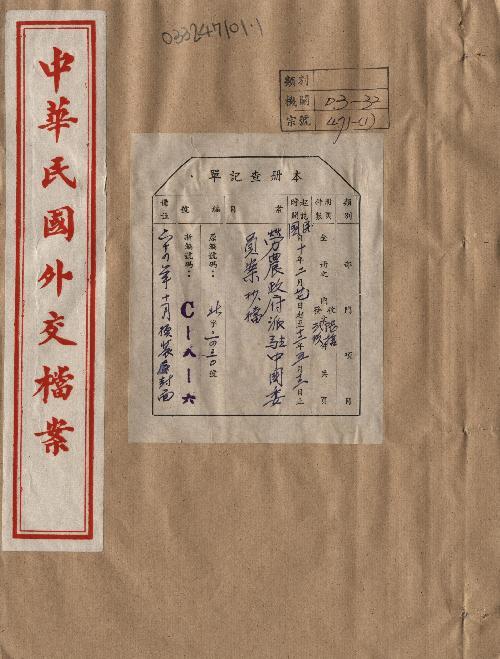 033247101·1
中華民國外交檔案
類別
機關 03—32
宗號 471-(1)
本册查記單
類別 部 門 項 目
附件 件數 全 研究 內 收 發 文 共 頁
起訖時間 民國十年二月廿七日起至十二年五月三日止
案 目 勞農政府派駐中國委
員案抄檔
編 號 原編號碼：北字二〇三〇號
新編號碼：C—人—六
備註 六十八年十一月換裝原封面